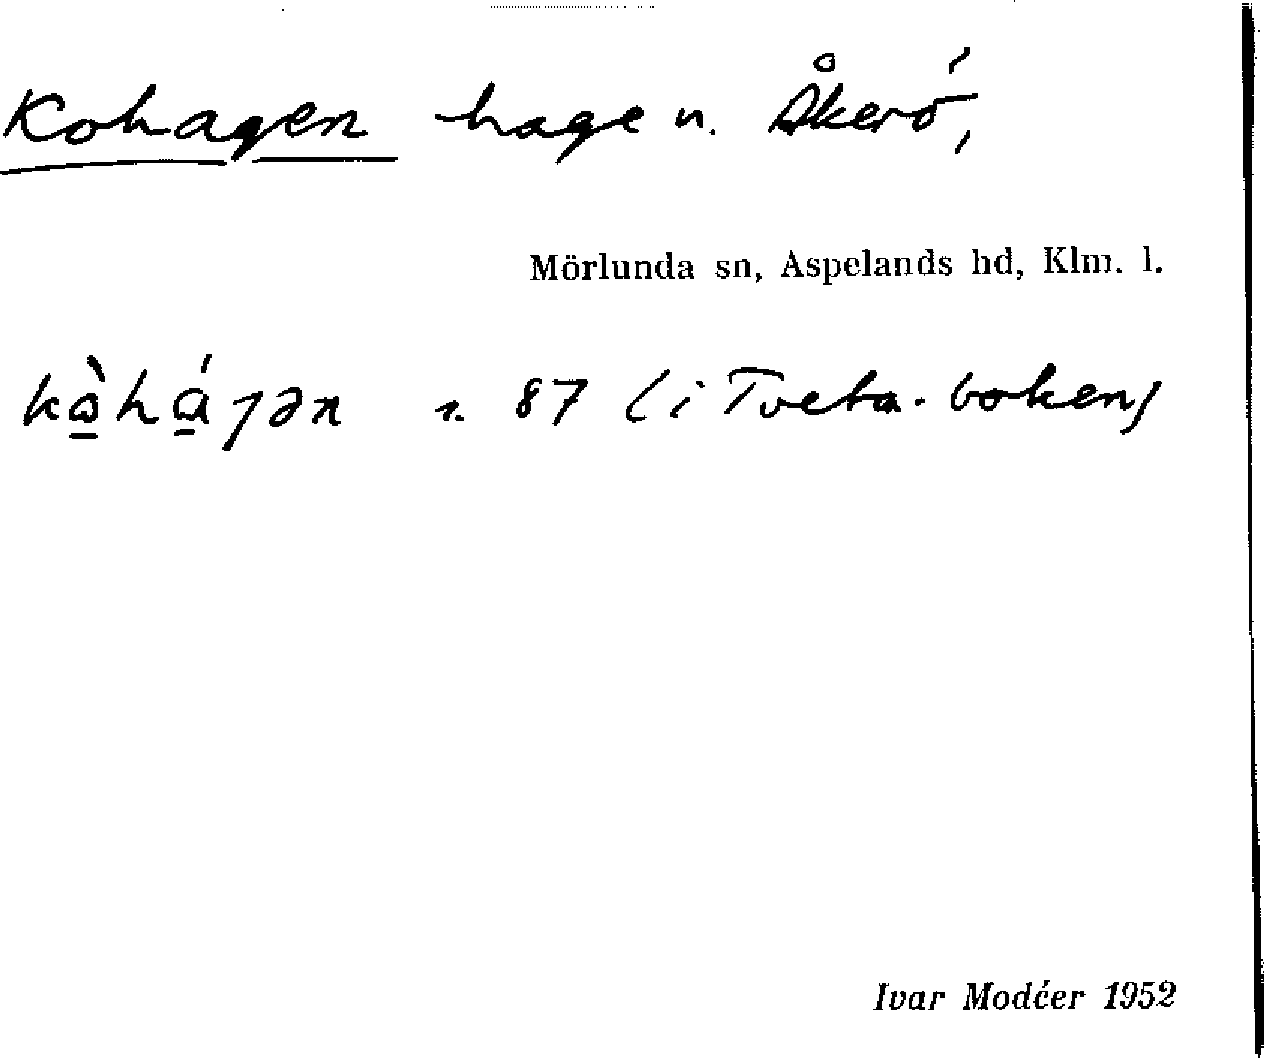 Kohagen hage n. Åkerö,
Mörlunda sn, Aspelands hd, Klm. l.
87 (i Tveta-boken)
Ivar Modéer 1952